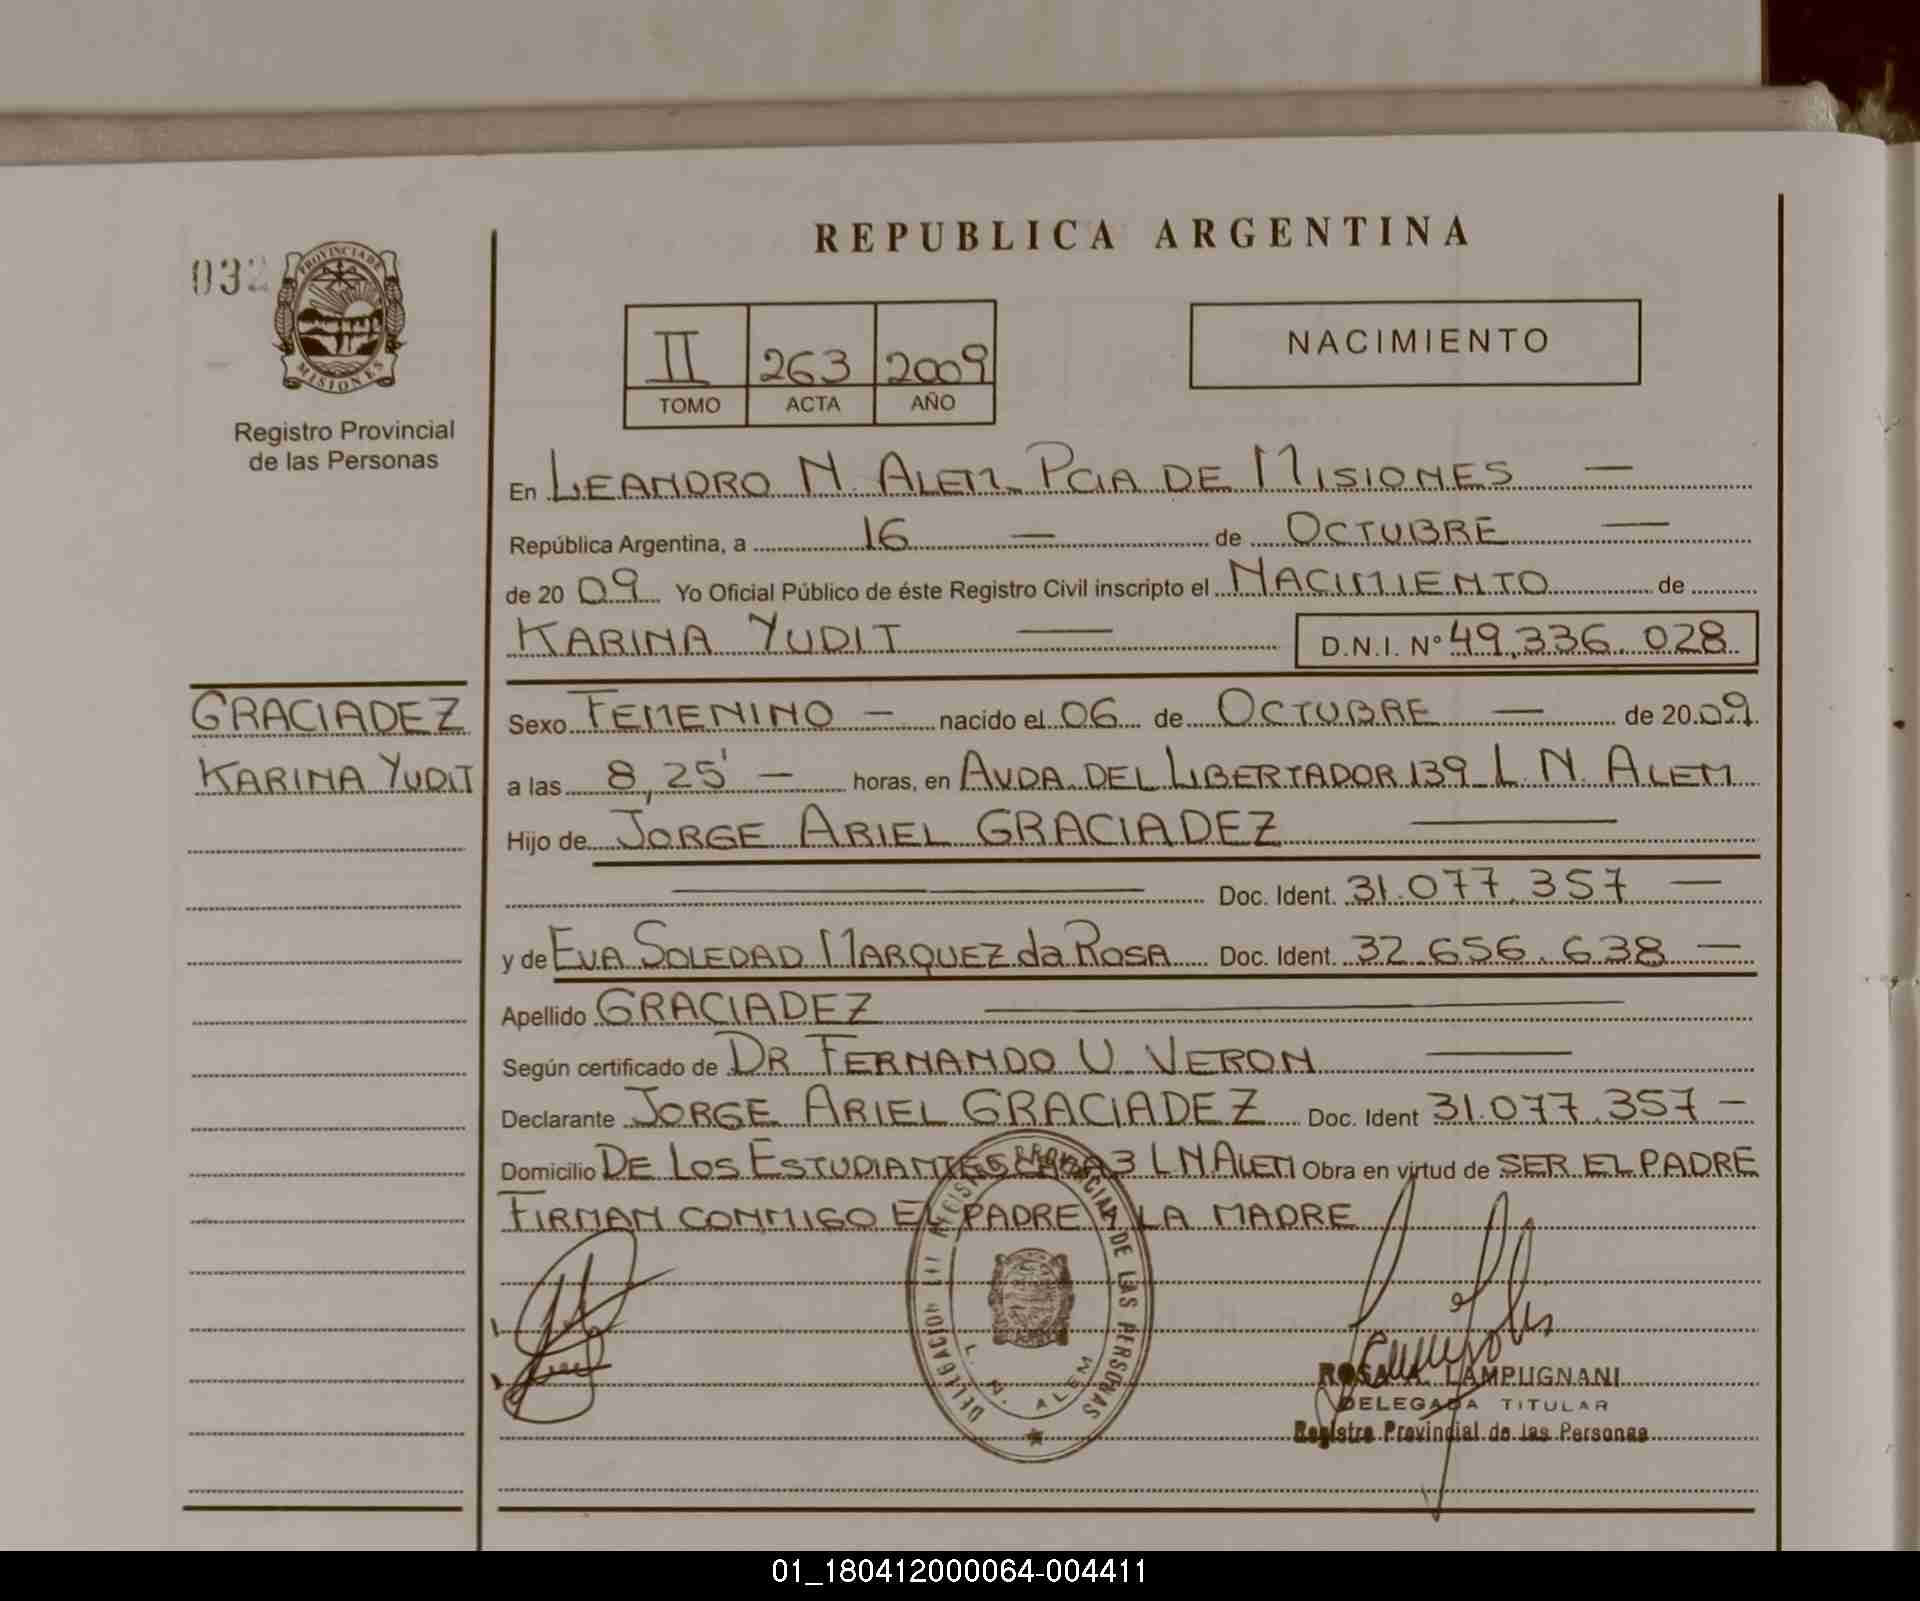 REPUBLICA ARGENTINA
03
PROVINCIA DE
MISIONES
Registro Provincial
de las Personas
II 263 2009
TOMO ACTA AÑO
NACIMIENTO
En LEANDRO N. ALEM PCIA DE MISIONES —
República Argentina, a 16 — de OCTUBRE —
de 20 09 Yo Oficial Público de éste Registro Civil inscripto el NACIMIENTO de
KARINA YUDIT — D.N.I. Nº 49.336.028
GRACIADEZ
KARINA YUDIT
Sexo FEMENINO — nacido el 06 de OCTUBRE — de 20 09
a las 8,25' — horas, en AVDA. DEL LIBERTADOR 139 L. N. ALEM
Hijo de JORGE ARIEL GRACIADEZ —
— Doc. Ident. 31.077.357 —
y de EVA SOLEDAD MARQUEZ da ROSA Doc. Ident. 32.656.638 —
Apellido GRACIADEZ —
Según certificado de DR FERNANDO U. VERON —
Declarante JORGE ARIEL GRACIADEZ Doc. Ident 31.077.357 —
Domicilio DE LOS ESTUDIANTES 3 L N ALEM Obra en virtud de SER EL PADRE
FIRMAN CONMIGO EL PADRE Y LA MADRE
DELEGACION REGISTRO PROVINCIAL DE LAS PERSONAS
L. N. ALEM
ROSA LAMPUGNANI
DELEGADA TITULAR
Registro Provincial de las Personas
01_180412000064-004411